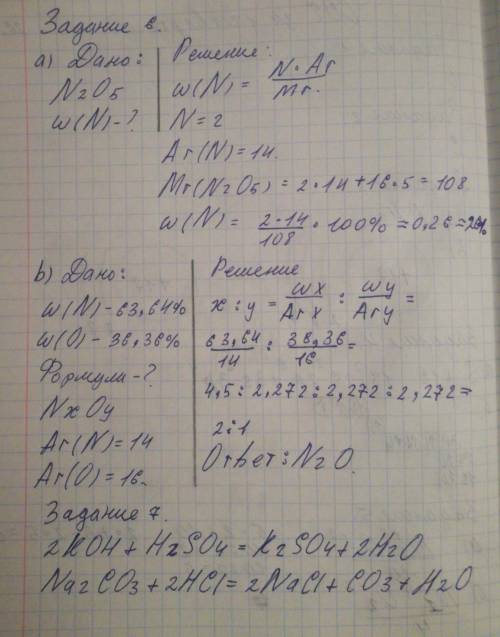 Задание 6.
а) Дано:
N2O5
w(N)-?
Решение:
w(N) = N·Ar / Mr.
N=2
Ar(N)=14.
Mr(N2O5) = 2·14+16·5=108
w(N) = 2·14 / 108 · 100% = 0,26 = 26%
b) Дано:
w(N)-63,64%
w(O)-36,36%
Формула-?
NxOy
Ar(N)=14
Ar(O)=16.
Решение
x:y = wx / Arx : wy / Ary =
63,64 / 14 : 38,36 / 16 =
4,5:2,272:2,272:2,272=
2:1
Ответ: N2O.
Задание 7.
2KOH+H2SO4=K2SO4+2H2O
Na2CO3+2HCl=2NaCl+CO3+H2O